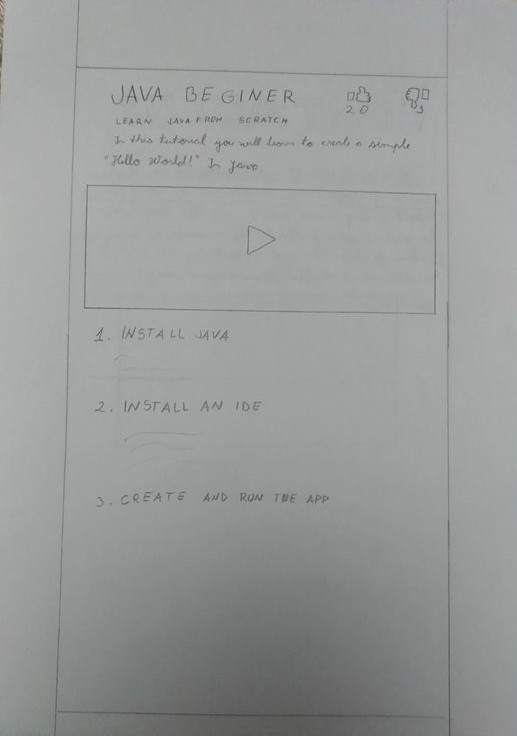 JAVA BEGINER
20 3
LEARN JAVA FROM SCRATCH
In this tutorial you will learn to create a simple
"Hello World!" In Java
1. INSTALL JAVA
2. INSTALL AN IDE
3. CREATE AND RUN THE APP